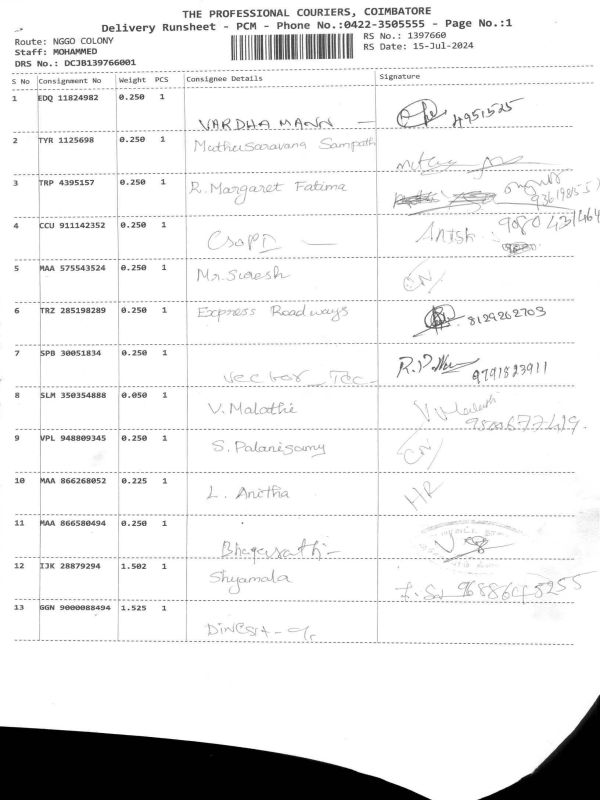 THE PROFESSIONAL COURIERS, COIMBATORE
Delivery Runsheet - PCM - Phone No.:0422-3505555 - Page No.:1
Route: NGGO COLONY
Staff: MOHAMMED
DRS No.: DCJB139766001
RS No.: 1397660
RS Date: 15-Jul-2024
S No Consignment No Weight PCS Consignee Details Signature
1 EDQ 11824982 0.250 1 VARDHAMANN — 4951525
2 TYR 1125698 0.250 1 Muthusaravana Sampath
3 TRP 4395157 0.250 1 R. Margaret Fatima
4 CCU 911142352 0.250 1 9080431464
5 MAA 575543524 0.250 1 Mr. Suresh CN
6 TRZ 285198289 0.250 1 Express Roadways 8129262703
7 SPB 30051834 0.250 1 Vector 9791823911
8 SLM 350354888 0.050 1 V. Malathi V. Malathi
9 VPL 948809345 0.250 1 S. Palanisamy CN
10 MAA 866268052 0.225 1 L. Anitha HR
11 MAA 866580494 0.250 1
12 IJK 28879294 1.502 1 Shyamala
13 GGN 9000088494 1.525 1